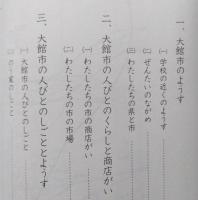 一、大館市のようす
㈠ 学校の近くのようす
㈡ ぜんたいのながめ
㈢ わたしたちの県と市
二、大館市の人びとのくらしと商店がい
㈠ わたしたちの市の商店がい
㈡ わたしたちの市の市場
三、大館市の人びとのしごととようす
㈠ 大館市の人びとのしごと